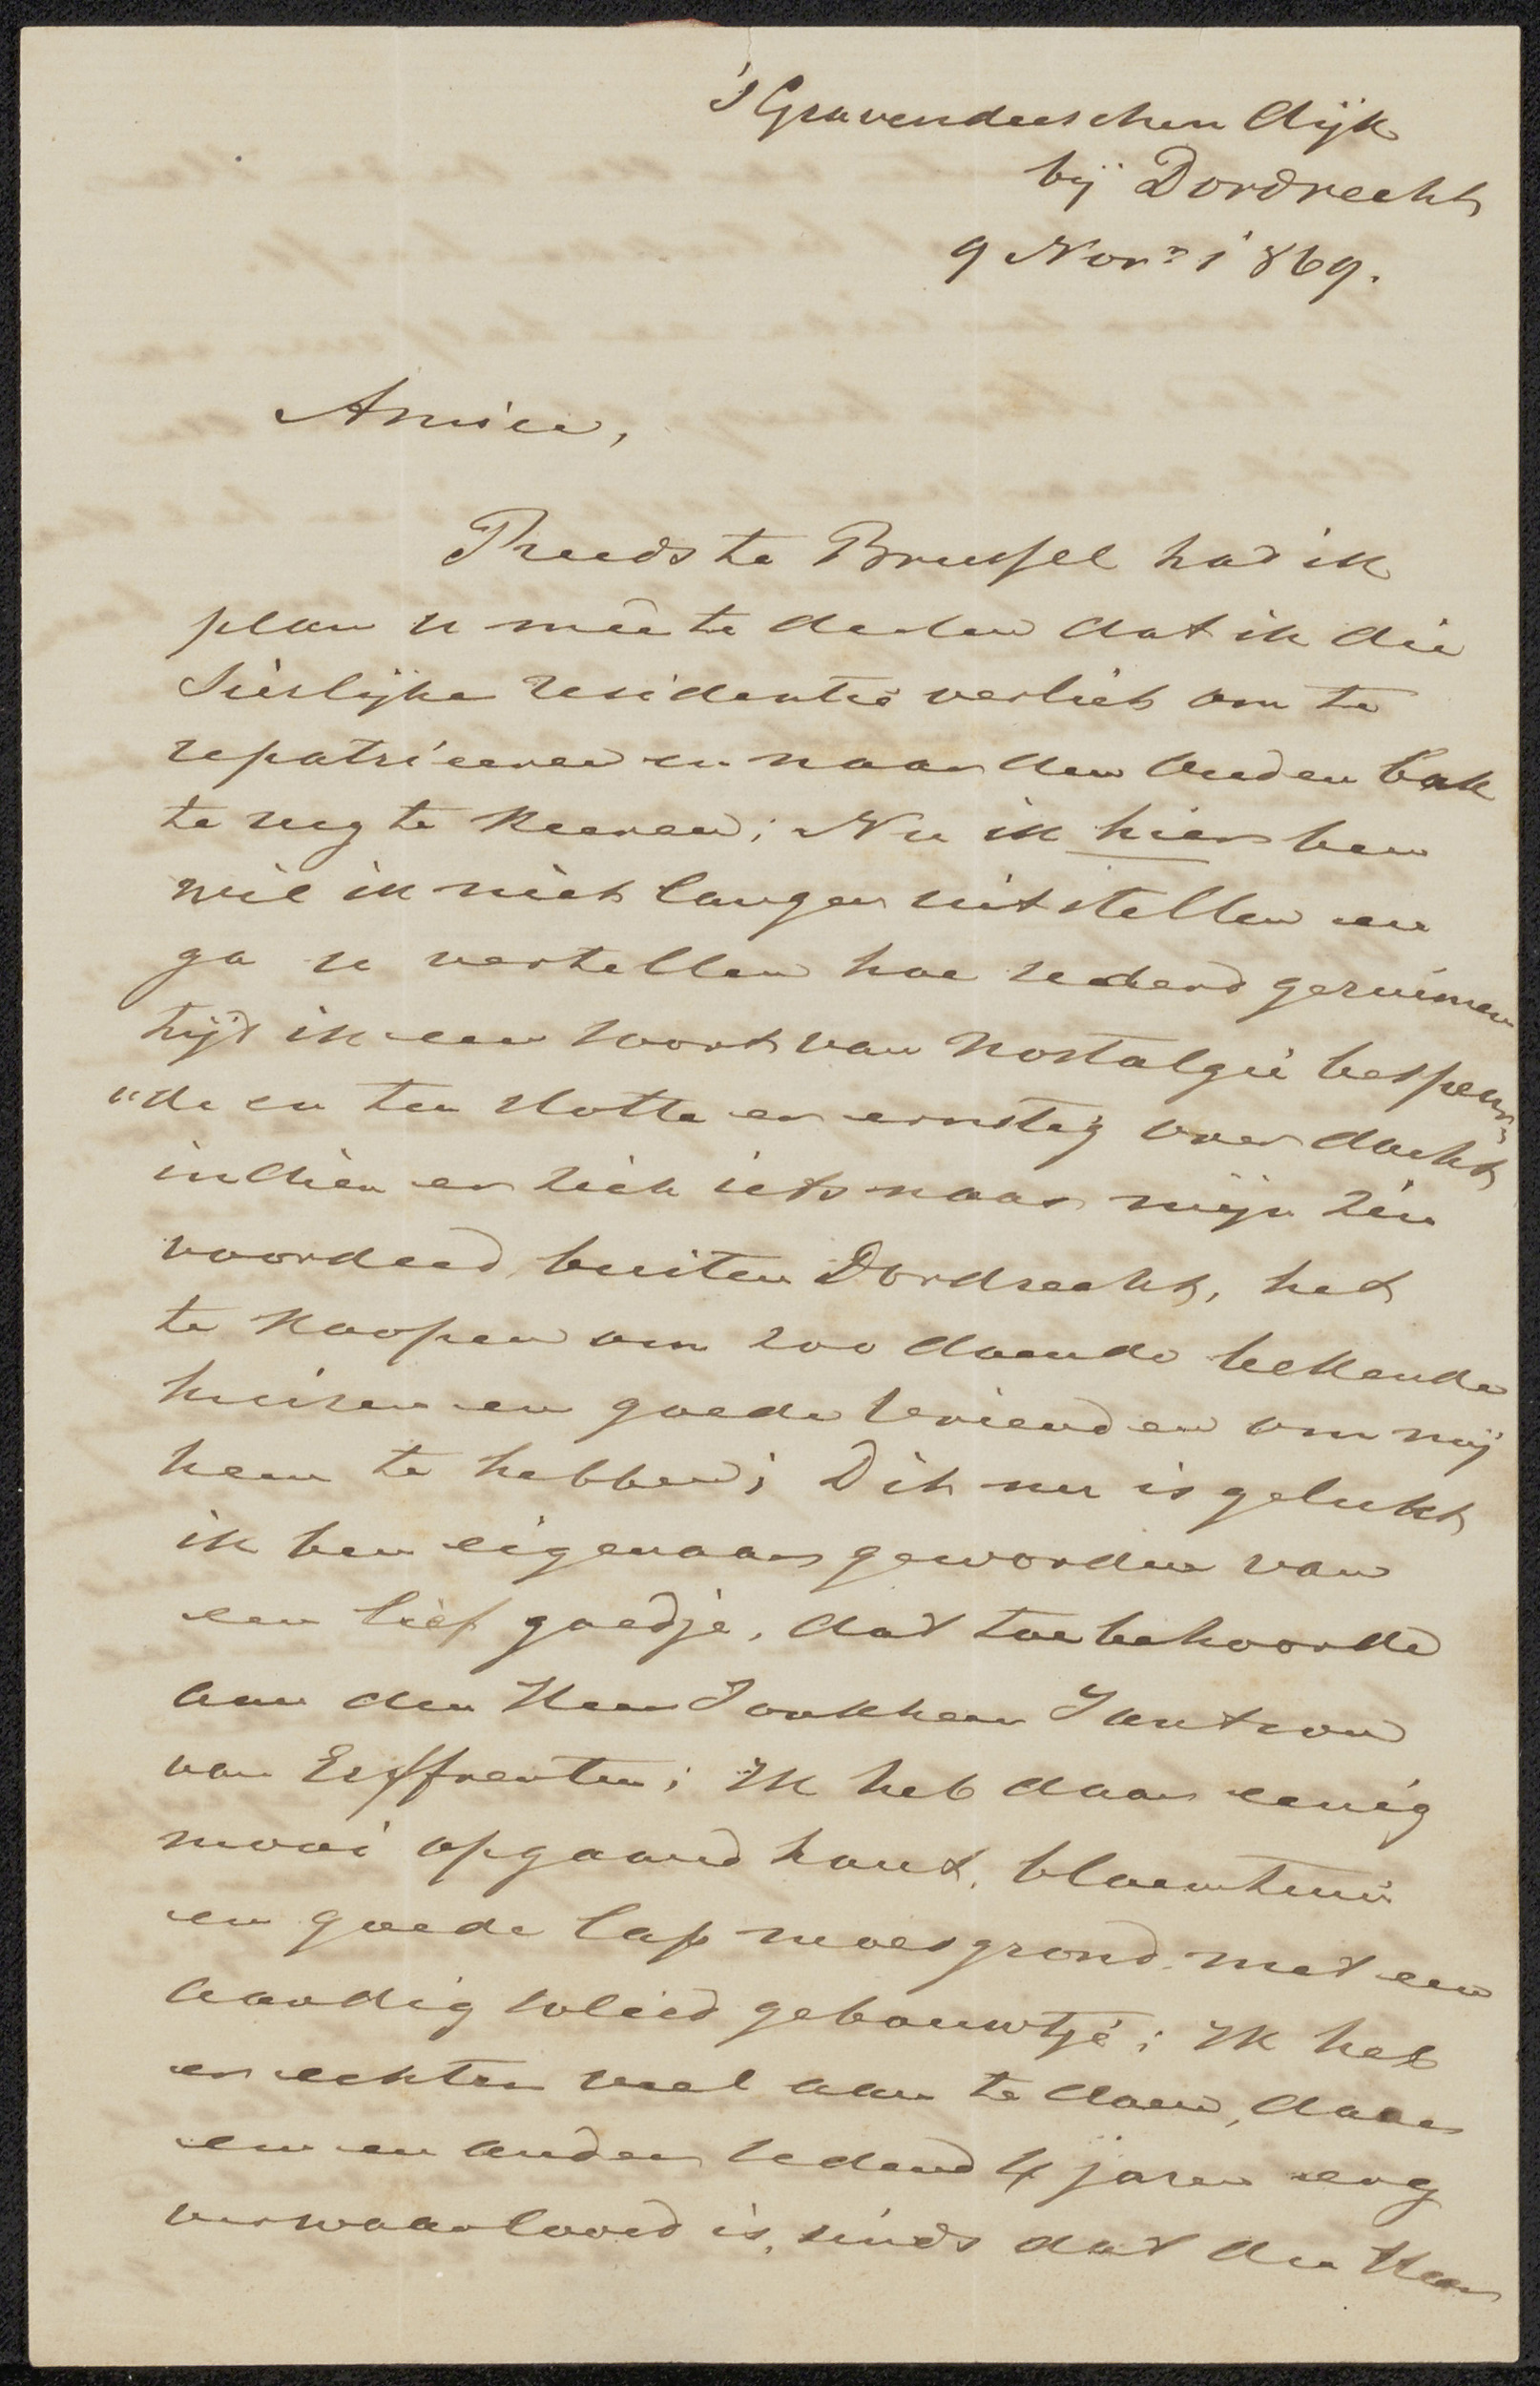 'sGravendeeschen dijk
bij Dordrecht
9 Nov.r 1869.
Amice,
Reeds te Brussel had ik
plan u mêe te deelen dat ik die
sierlijke residentie verliet om te
repatrieeren en naar den ouden bak
terug te keeren; Nu ik hier ben
wil ik niet langer uitstellen en
ga u vertellen hoe sederd geruimen
tijd ik een soort van nostalgie bespeur=
"de en ten slotte er ernstig over dacht
indien er zich iets naar mijn zin
voordeed buiten Dordrecht, het
te koopen om zoo doende bekende
huizen en goede vrienden om mij
heen te hebben; Dit nu is gelukt
ik ben eigenaar geworden van
een lief goedje, dat toebehoorde
aan den Heer Jonkheer Jantzon
van Erffrenten; Ik heb daar eenig
mooi opgaand hout, bloemtuin
en goede lap moesgrond met een
aardig solied gebouwtje; Ik heb
er echter veel aan te doen, daar
een en ander sederd 4 jaren erg
verwaarloosd is, sinds dat de Heer